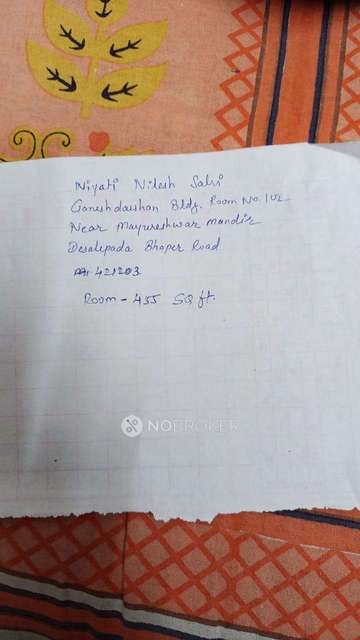 Niyati Nilesh Salvi
Ganeshdarshan Bldg. Room No. 102
Near Mayureshwar mandir
Desalepada Bhoper Road
421203
Room - 455 SQ ft.
NOBROKER